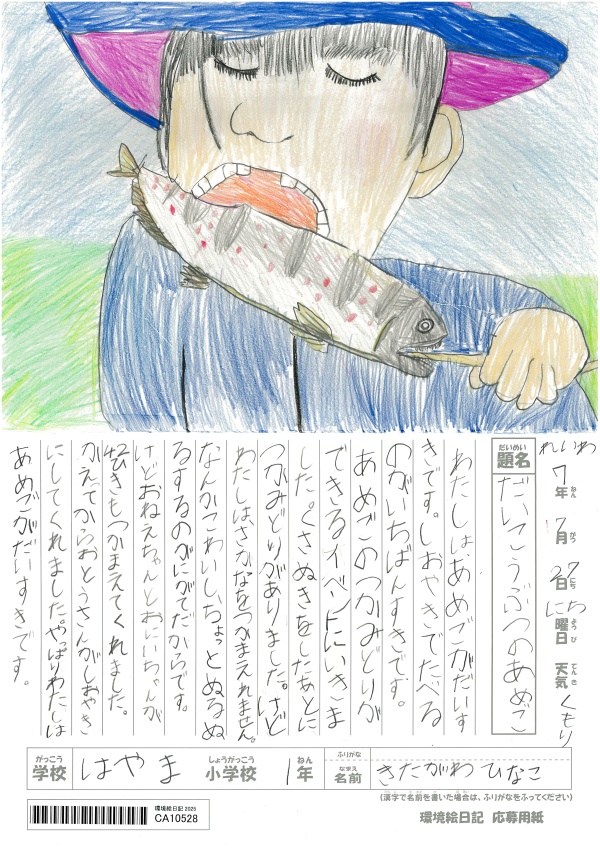 れいわ7年ねん7月がつ27日にちにち曜日ようび天気てんきくもり
題名だいめい だいこうぶつのあめご
わたしは、あめごがだいす
きです。しおやきでたべる
のがいちばんすきです。
あめごのつかみどりが
できるイベントにいきま
した。くさぬきをしたあとに
つかみどりがありました。けど
わたしは、さかなをつかまえれません。
なんかこわいし、ちょっとぬるぬ
るするのがにがてだからです。
けどおねえちゃんとおにいちゃんが
42ひきもつかまえてくれました。
かえってからおとうさんがしおやき
にしてくれました。やっぱりわたしは
あめごがだいすきです。
学校がっこう はやま 小学校しょうがっこう 1年ねん 名前なまえ ふりがな きたがわ ひなこ
(漢字で名前を書いた場合は、ふりがなをふってください)
環境絵日記 2025
CA10528
環境絵日記 応募用紙